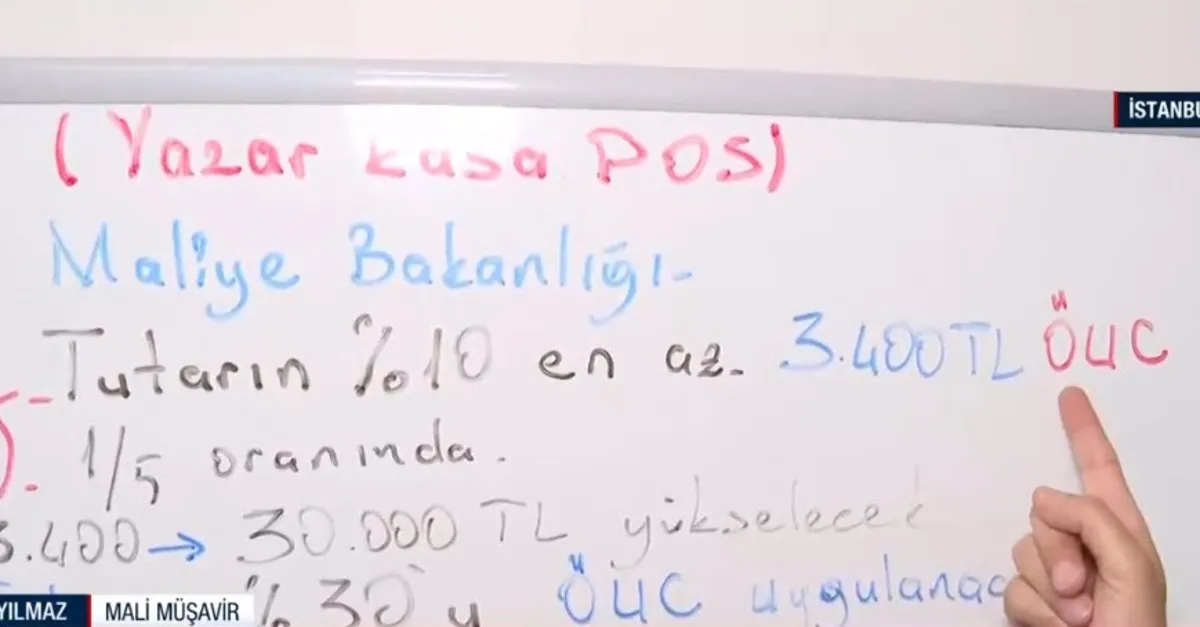 İSTANBU
(Yazar kasa POS)
Maliye Bakanlığı-
Tutarın %10 en az. 3.400 TL ÖUC
1/5 oranında.
3.400→ 30.000 TL yükselecek
% 30'u ÖUC uygulanac
YILMAZ MALİ MÜŞAVİR